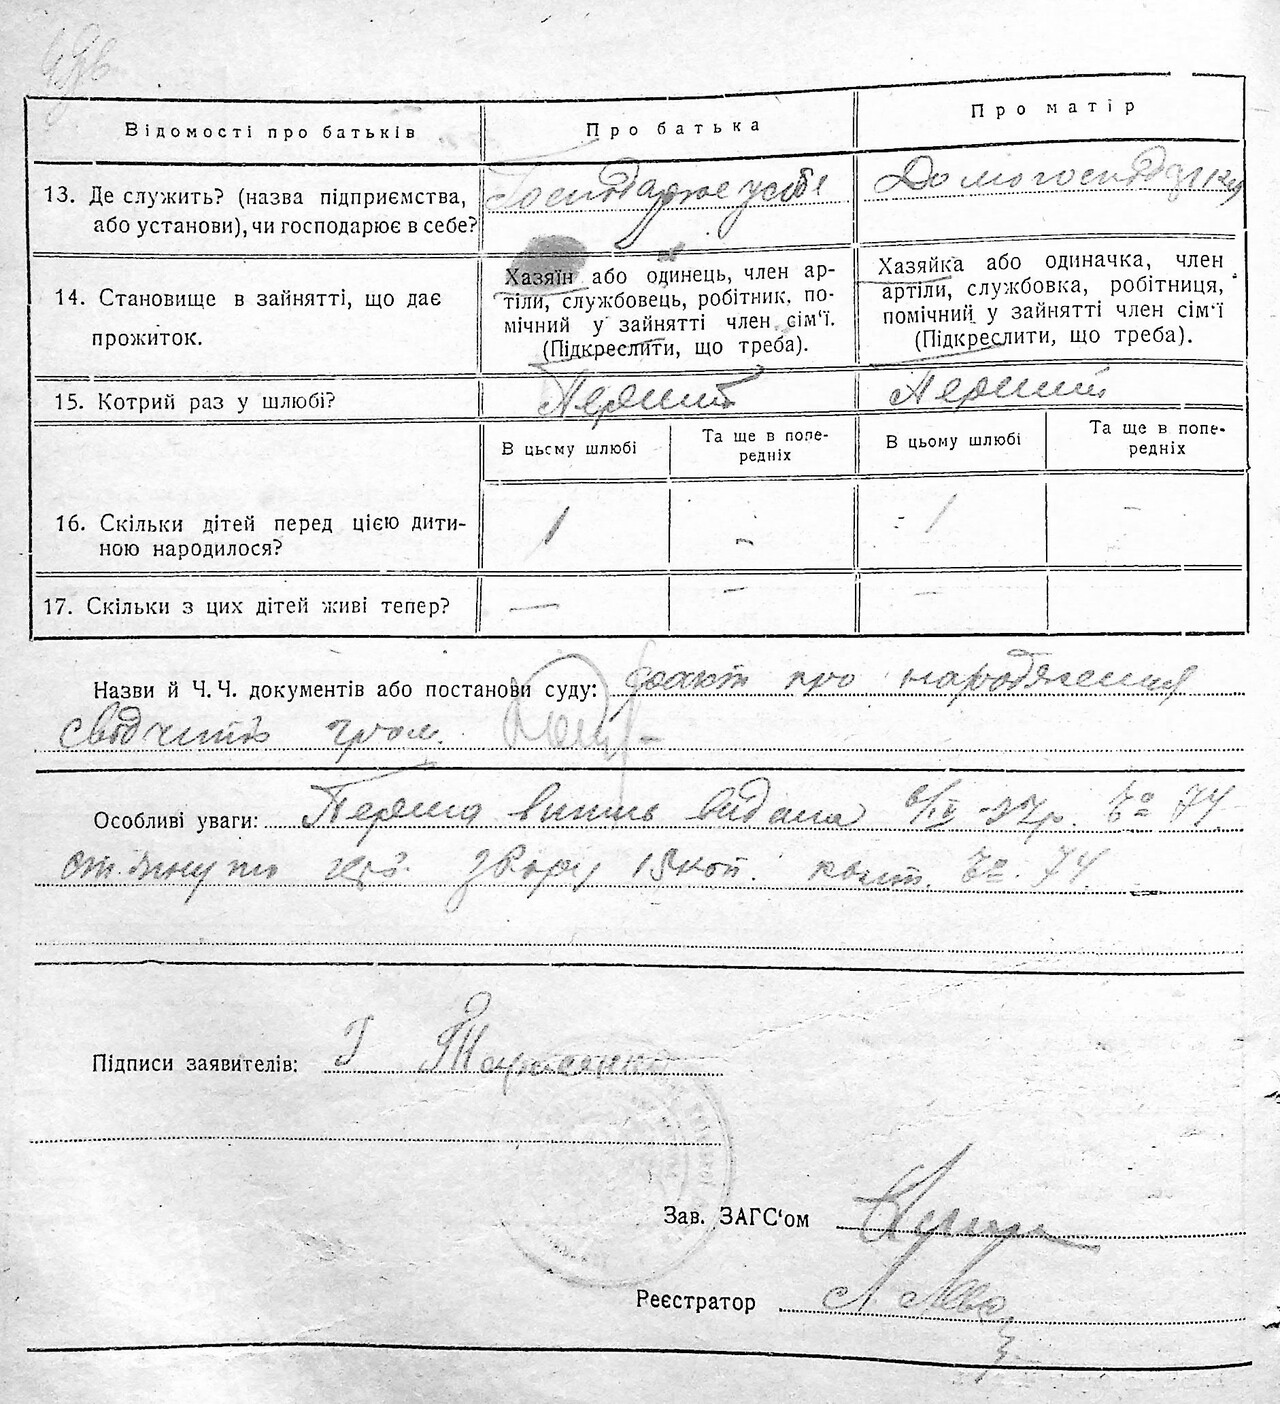 Відомості про батьків
Про батька
Про матір
13. Де служить? (назва підприємства,
або установи), чи господарює в себе?
Господарює у себе
Домогосподарка
14. Становище в зайнятті, що дає
прожиток.
Хазяїн або одинець, член ар-
тіли, службовець, робітник, по-
мічний у зайнятті член сім'ї.
(Підкреслити, що треба).
Хазяйка або одиначка, член
артіли, службовка, робітниця,
помічний у зайнятті член сім'ї
(Підкреслити, що треба).
15. Котрий раз у шлюбі?
Перший
Перший
В цьому шлюбі
Та ще в попе-
редніх
В цьому шлюбі
Та ще в попе-
редніх
16. Скільки дітей перед цією дити-
ною народилося?
1 - 1 -
17. Скільки з цих дітей живі тепер?
— - - -
Назви й Ч. Ч. документів або постанови суду: факт про народження
свідчить гром.
Особливі уваги: Перша випись видана 74
збору 15 коп. 74.
Підписи заявителів: Тарасенко
Зав. ЗАГС'ом
Реєстратор